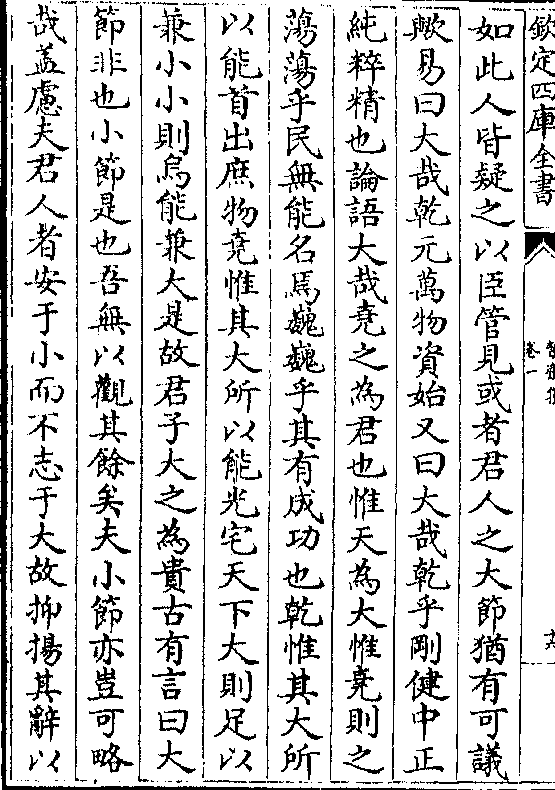 欽定四庫全書
卷一
如此人皆疑之以臣管見或者君人之大節猶有可議
歟易曰大哉乾元萬物資始又曰大哉乾乎剛健中正
純粹精也論語大哉堯之為君也惟天為大惟堯則之
蕩蕩乎民無能名焉巍巍乎其有成功也乾惟其大所
以能首出庶物堯惟其大所以能光宅天下大則足以
兼小小則烏能兼大是故君子大之為貴古有言曰大
節非也小節是也吾無以觀其餘矣夫小節亦豈可略
哉蓋慮夫君人者安于小而不志于大故抑揚其辭以